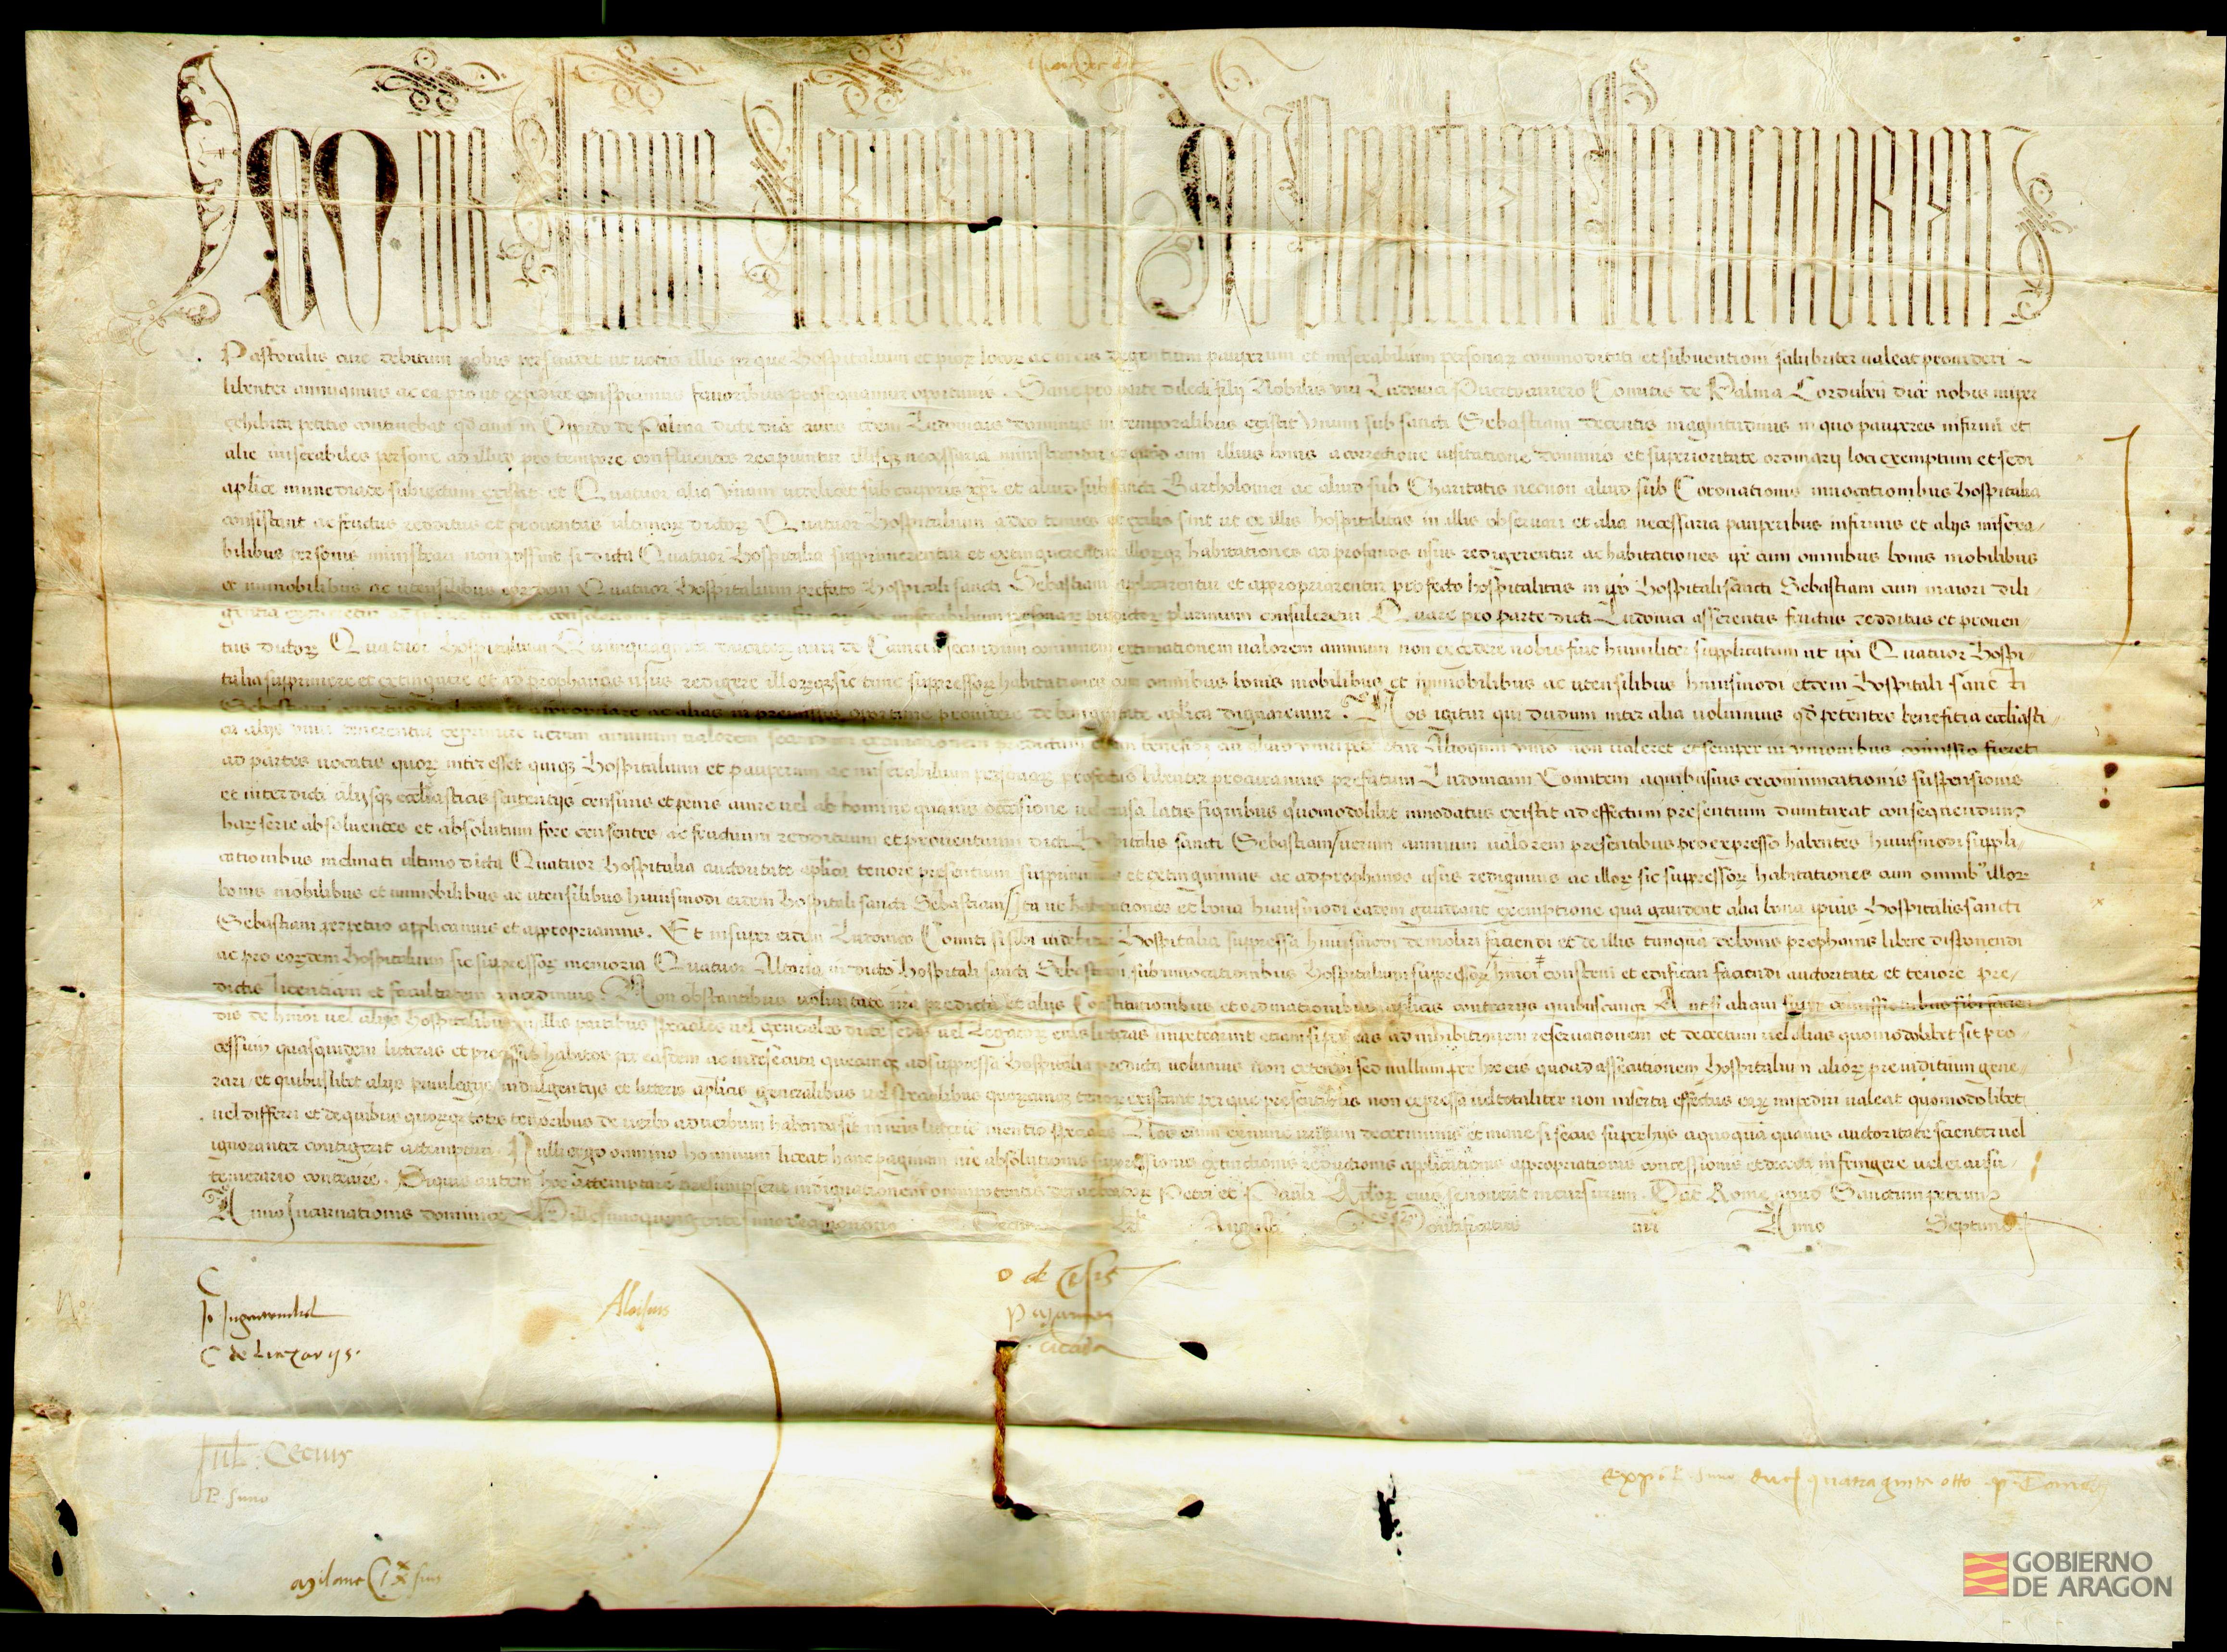 Leo eps Seruus Seruorum dei Ad Perpetuam Rei memoriam
Pastoralis cure debitum nobis ut uotis illis per que Hospitalium et pior locor ac in eis degentium pauperum et miserabilium personar commoditati et subuentioni salubriter ualeat prouideri
libenter annuamus ac ea prout expedire conspicimus fauoribus prosequamur oportunis. Sane pro parte dilecti filij Nobilis uiri Ludouici Comitis de Palma Corduben dioc nobis nuper
exhibita petitio continebat qd cum in Oppido de Palma dicte dioc cuius idem Ludouicus dominus in temporalibus existit Vnum sub sancti Sebastiani decentis magnitudinis in quo pauperes infirmi et
alie miserabiles persone ad illud pro tempore confluentes recipiuntur illisq necessaria ministrantur cum illius bonis a correctione uisitatione dominio et superioritate ordinarij loci exemptum et sedi
aplice immediate subiectum existit et Quatuor alia Vnum uidelicet sub corporis xpi et aliud sub sancti Bartholomei ac aliud sub Charitatis necnon aliud sub Coronationis inuocationibus Hospitalia
consistant ac fructus redditus et prouentus ultimor dictor Quatuor Hospitalium adeo tenues et exiles sint ut ex illis hospitalitas in illis obseruari et alia necessaria pauperibus infirmis et alijs misera/
bilibus personis ministrari non possint si dicta Quatuor Hospitalia supprimerentur et extinguerentur illorq habitationes ad profanos usus redigerentur ac habitationes ipe cum omnibus bonis mobilibus
et immobilibus ac utensilibus eordem Quatuor Hospitalium prefato Hospitali sancti Sebastiani applicarentur et appropriarentur profecto hospitalitas in ipo Hospitali sancti Sebastiani cum maiori dili/
gentia miserabilium personar plurimum consuleretur Quare pro parte dicti Ludouici asserentis fructus redditus et prouen/
tus dictor Quatuor Hospitalium Quinquaginta ducator auri de Camera secundum communem extimationem ualorem annuum non excedere nobis fuit humiliter supplicatum ut ipa Quatuor Hospi/
talia supprimere et extinguere et ad prophanos usus redigere illorqsic tunc suppressor habitationes cum omnibus bonis mobilibus et immobilibus ac utensilibus huiusmodi eidem Hospitali sancti
Sebastiani appropriare ac alias in premissis oportune prouidere de benignitate aplica dignaremur. Nos igitur qui dudum inter alia uoluimus qd petentes beneficia ecclesiasti/
ca alijs uniri tenerentur exprimere uerum annuum ualorem secundum extimationem predictam etiam beneficij cui aliud uniri peteretur Alioquin vnio non ualeret et semper in vnionibus comissio fieret
ad partes uocatis quor interesset quiq Hospitalium et pauperum ac miserabilium personar profectus libenter procuramus prefatum Ludouicum Comitem a quibusuis excomunicationis suspensionis
et interdicti alijsq ecclesiasticis sententijs censuris et penis a iure uel ab homine quauis occasione uel causa latis siquibus quomodolibet innodatus existit ad effectum presentium duntaxat consequendum
har serie absoluentes et absolutum fore censentes ac fructuum reddituum et prouentuum dicti Hospitalis sancti Sebastiani uerum annuum ualorem presentibus pro expresso habentes huiusmodi suppli/
cationibus inclinati ultimo dicta Quatuor Hospitalia auctoritate aplica tenore presentium supprimimus et extinguimus ac ad prophanos usus redigimus ac illor sic suppressor habitationes cum omnib illor
bonis mobilibus et immobilibus ac utensilibus huiusmodi eidem Hospitali sancti Sebastiani Ita ut habitationes et bona huiusmodi eadem gaudeant exemptione qua gaudent alia bona ipius Hospitalis sancti
Sebastiani perpetuo applicamus et appropriamus. Et insuper eidem Ludouico Comiti si sibi uidebitur Hospitalia suppressa huiusmodi demoliri faciendi et de illis tanqua de bonis prophanis libere disponendi
ac pro eordem Hospitalium sic suppressor memoria Quatuor Altaria in dicto Hospitali sancti Sebastiani sub inuocationibus Hospitalium suppressor hmoi construi et edificari faciendi auctoritate et tenore pre/
dictis licentiam et facultatem concedimus. Non obstantibus uoluntate nra predicta et alijs Constitutionibus et ordinationibus aplicis contrarijs quibuscunq Aut si aliqui super comissionibus sibi facien
dis de hmoi uel alijs Hospitalibus in illis partibus speciales uel generales dicte sedis uel Legator eius litteras impetrarint etiam si per eas ad inhibitionem reseruationem et decretum uel alias quomodolibet sit pro
cessum quasquidem litteras et processus habitos per easdem ac inde secuta quecunq ad suppressa Hospitalia predicta uolumus non extendi sed nullum per hoc eis quo ad assecutionem Hospitalium alior preiuditium gene/
rari/ et quibuslibet alijs priuilegijs indulgentijs et litteris aplicis generalibus uel specialibus quorcunq tenor existant per que presentibus non expressa uel totaliter non inserta effectus ear impediri ualeat quomodolibet
uel differri et de quibus quorq totis tenoribus de uerbo ad uerbum habenda sit in nris litteris mentio specialis Nos enim exnunc irritum decernimus et inane si secus super hijs a quoqua quauis auctoritate scienter uel
ignoranter contigerit attemptari. Nulli ergo omnino hominum liceat hanc paginam nre absolutionis suppressionis extinctionis reductionis applicationis appropriationis concessionis et decreti infringere uel ei ausu
temerario contraire. Siquis autem hoc attemptare presumpserit indignationem omnipotentis dei ac beator Petri et Pauli Aplor eius se nouerit incursurum. Dat Rome apud Sanctum petrum
Anno Incarnationis dominice Millesimoquingentesimo kl Augusti Pontificatus nri Anno Septimo
C de Linzarijs.
Aloisius
o de Cesis
Jul. Cecius
quatraginta otto
GOBIERNO
DE ARAGON